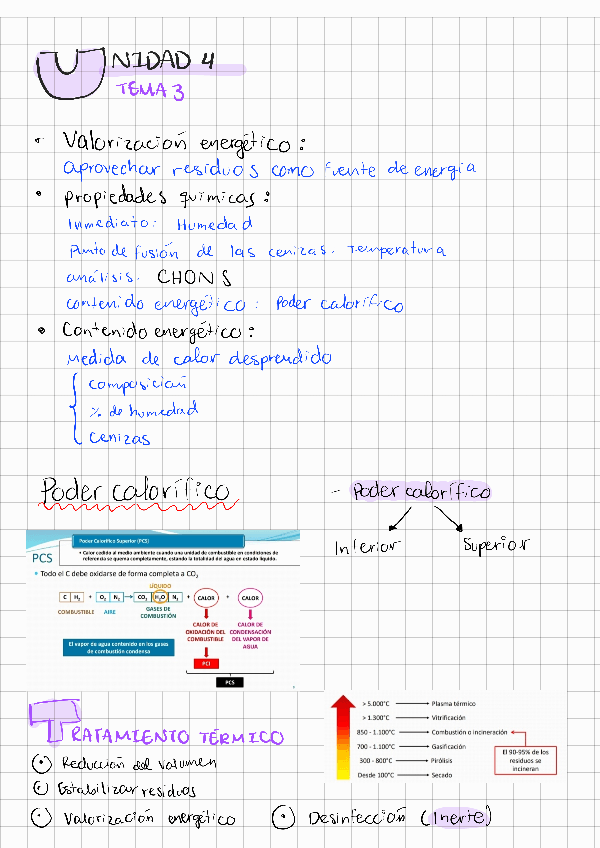 UNIDAD 4
TEMA 3
- Valorización energético:
aprovechar residuos como fuente de energía
• propiedades químicas:
Inmediato: Humedad
Punto de fusión de las cenizas. Temperatura
análisis. CHONS
contenido energético: Poder calorífico
• Contenido energético:
Medida de calor desprendido
composición
% de humedad
cenizas
Poder calorífico
- Poder calorífico
Inferior Superior
Poder Calorífico Superior (PCS)
PCS
• Calor cedido al medio ambiente cuando una unidad de combustible en condiciones de
referencia se quema completamente, estando la totalidad del agua en estado líquido.
• Todo el C debe oxidarse de forma completa a CO₂
LÍQUIDO
C H₂ + O₂ N₂ → CO₂ H₂O N₂ + CALOR + CALOR
COMBUSTIBLE AIRE GASES DE
COMBUSTIÓN
CALOR DE
OXIDACIÓN DEL
COMBUSTIBLE
CALOR DE
CONDENSACIÓN
DEL VAPOR DE
AGUA
El vapor de agua contenido en los gases
de combustión condensa
PCI
PCS
TRATAMIENTO TÉRMICO
Reducción del volumen
Estabilizar residuos
Valorización energético
Desinfección (Inerte)
> 5.000°C → Plasma térmico
> 1.300°C → Vitrificación
850 - 1.100°C → Combustión o incineración
700 - 1.100°C → Gasificación
300 - 800°C → Pirólisis
Desde 100°C → Secado
El 90-95% de los
residuos se
incineran